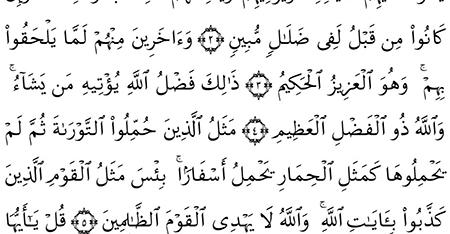 كَانُوا۟ مِن قَبْلُ لَفِى ضَلَٰلٍ مُّبِينٍ ﴿٢﴾ وَءَاخَرِينَ مِنْهُمْ لَمَّا يَلْحَقُوا۟
بِهِمْ ۚ وَهُوَ ٱلْعَزِيزُ ٱلْحَكِيمُ ﴿٣﴾ ذَٰلِكَ فَضْلُ ٱللَّهِ يُؤْتِيهِ مَن يَشَآءُ ۚ
وَٱللَّهُ ذُو ٱلْفَضْلِ ٱلْعَظِيمِ ﴿٤﴾ مَثَلُ ٱلَّذِينَ حُمِّلُوا۟ ٱلتَّوْرَىٰةَ ثُمَّ لَمْ
يَحْمِلُوهَا كَمَثَلِ ٱلْحِمَارِ يَحْمِلُ أَسْفَارًۢا ۚ بِئْسَ مَثَلُ ٱلْقَوْمِ ٱلَّذِينَ
كَذَّبُوا۟ بِـَٔايَٰتِ ٱللَّهِ ۚ وَٱللَّهُ لَا يَهْدِى ٱلْقَوْمَ ٱلظَّٰلِمِينَ ﴿٥﴾ قُلْ يَٰٓأَيُّهَا